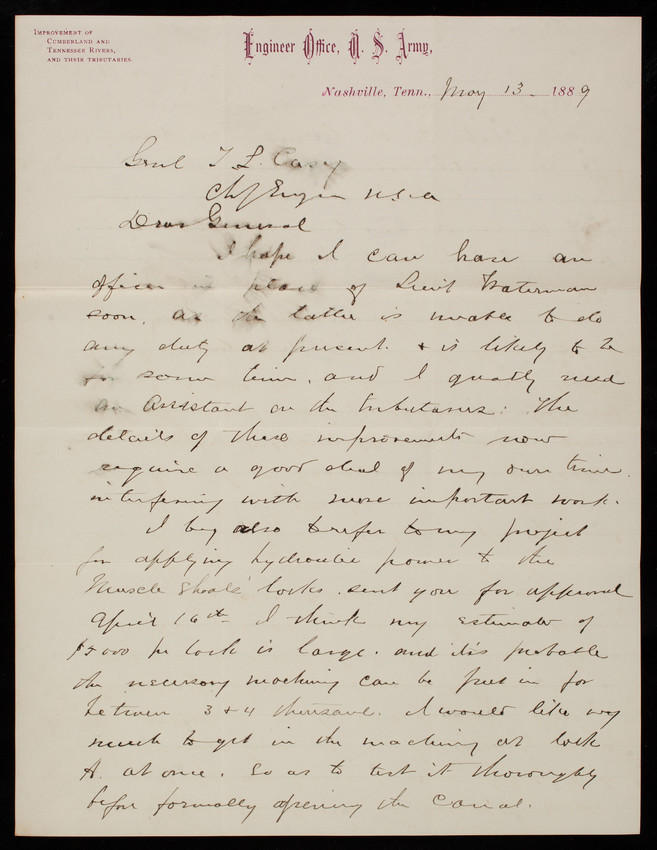 IMPROVEMENT OF
CUMBERLAND AND
TENNESSEE RIVERS,
AND THEIR TRIBUTARIES.
Engineer Office, U. S. Army,
Nashville, Tenn., May 13 - 1889
Genl T L. Casey
Chf Engrs U S A
Dear General
I hope I can have an
officer in place of Lieut Waterman
soon, as the latter is unable to do
any duty at present & is likely to be
for some time, and I greatly need
an Assistant on the tributaries: The
details of these improvements now
require a good deal of my own time.
interfering with more important work.
I beg also to refer to my project
for applying hydraulic power to the
Muscle Shoals locks. sent you for approval
April 16th. I think my estimate of
$5000 per lock is large. and it is probable
the necessary machinery can be put in for
between 3 & 4 thousand. I would like very
much to get in the machinery at lock
A. at once. So as to test it thoroughly
before formally opening the Canal.